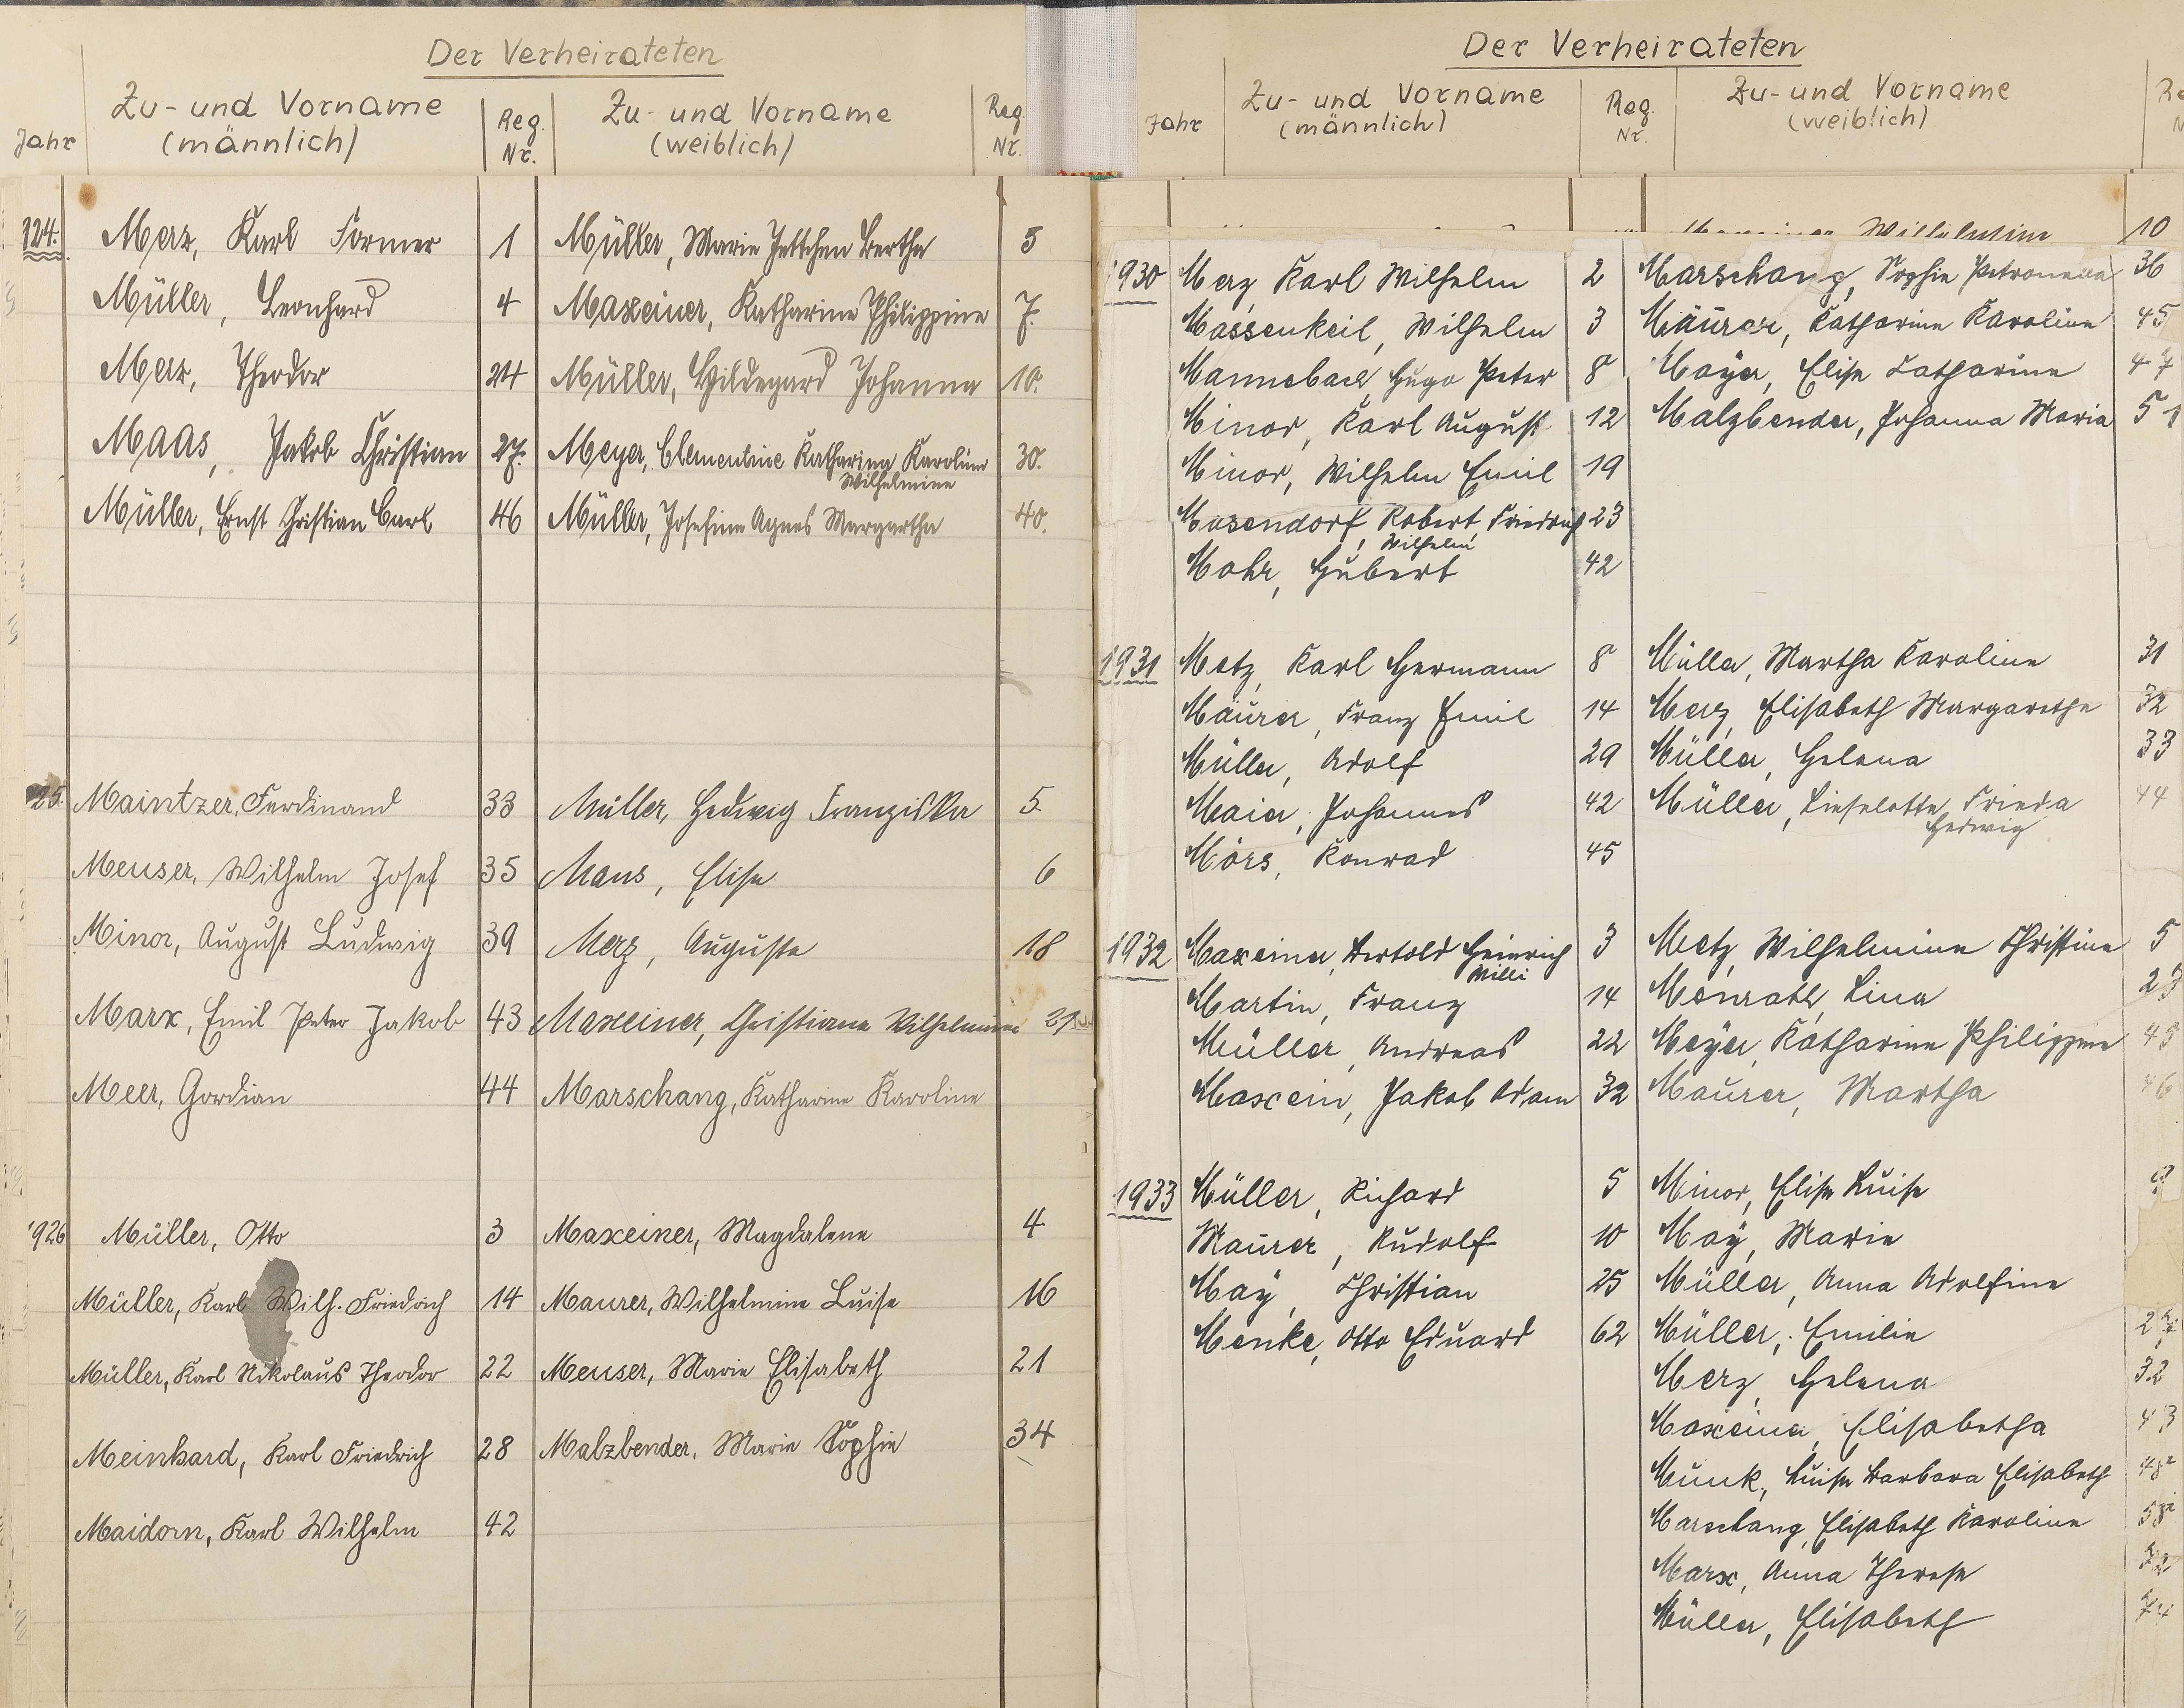 Der Verheirateten
Jahr Zu- und Vorname (männlich) Reg. Nr. Zu- und Vorname (weiblich) Reg. Nr.
124. Merz, Karl Former 1 Müller, Marie Jettchen Bertha 5
Müller, Leonhard 4 Maxeiner, Katharine Philippine 7.
Merz, Theodor 24 Müller, Hildegard Johanna 10.
Maas, Jakob Christian 27. Meyer, Clementine Katharina Karoline 30.
Wilhelmine
Müller, Ernst Christian Carl 46 Müller, Josefine Agnes Margartha 40.
25. Maintzer, Ferdinand 33 Müller, Hedwig Franziska 5.
Meuser, Wilhelm Josef 35 Maus, Elise 6
Minor, August Ludwig 39 Merz, Auguste 18
Marx, Emil Peter Jakob 43 Maxeiner, Christiane Wilhelmine 21
Meer, Gordian 44 Marschang, Katharine Karoline
1926 Müller, Otto 3 Maxeiner, Magdalene 4
Müller, Karl Wilh. Friedrich 14 Maurer, Wilhelmine Luise 16
Müller, Karl Nikolaus Theodor 22 Meuser, Marie Elisabeth 21
Meinhard, Karl Friedrich 28 Malzbender, Marie Sophie 34
Maidorn, Karl Wilhelm 42
Der Verheirateten
Jahr Zu- und Vorname (männlich) Reg. Nr. Zu- und Vorname (weiblich)
Wilhelmine 10
1930 Merz, Karl Wilhelm 2 Marschang, Sophie Petronella 36
Massenkeil, Wilhelm 3 Mäurer, Katharine Karoline 45
Mannebach, Hugo Peter 8 Mayer, Elise Katharine 47
Minor, Karl August 12 Malzbender, Johanna Maria 51
Minor, Wilhelm Emil 19
Masendorf, Robert Friedrich 23
Wilhelm
Mohr, Hubert 42
1931 Metz, Karl Hermann 8 Müller, Martha Karoline 31
Maurer, Franz Emil 14 Merz, Elisabeth Margarethe 32
Müller, Adolf 29 Müller, Helena 33
Maier, Johannes 42 Müller, Lieselotte Frieda 44
Hedwig
Mörs, Konrad 45
1932 Maxeiner, Bertold Heinrich 3 Metz, Wilhelmine Christine 5
Willi
Martin, Franz 14 Menrath, Lina
Müller, Andreas 22 Meyer, Katharine Philippine 45
Maxein, Jakob Adam 32 Maurer, Martha 46
1933 Müller, Richard 5 Minor, Elise Luise
Maurer, Rudolf 10 May, Marie
May, Christian 25 Müller, Anna Adolfine
Menke, Otto Eduard 62 Müller, Emilie
Merz, Helena 32
Maxeiner, Elisabetha 43
Munk, Luise Barbara Elisabeth 48
Marschang, Elisabeth Karoline 58
Marx, Anna Therese 72
Müller, Elisabeth 74